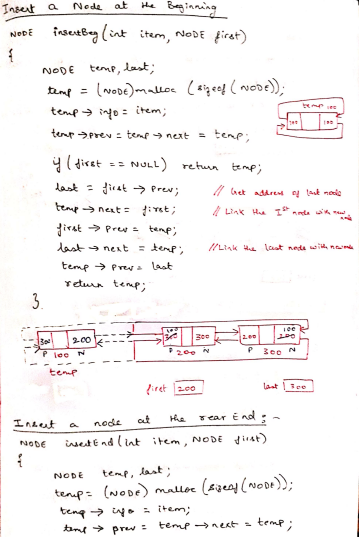 Insert a Node at the Beginning
NODE insertBeg(int item, NODE first)
{
NODE temp, last;
temp = (NODE)malloc (sizeof(NODE));
temp → info = item;
temp 100
100 100
temp→prev = temp→next = temp;
if (first == NULL) return temp;
last = first → prev; // Get address of last node
temp → next = first; // Link the Ist node with new node
first → prev = temp;
last → next = temp; //Link the last node with new node
temp → prev = last
return temp;
}
100 100
300 200 300 300 200 200
P 100 N P 200 N P 300 N
temp
first 200 last 300
Insert a node at the rear End :-
NODE insertEnd(int item, NODE first)
{
NODE temp, last;
temp = (NODE) malloc (sizeof(NODE));
temp → info = item;
temp → prev = temp → next = temp;